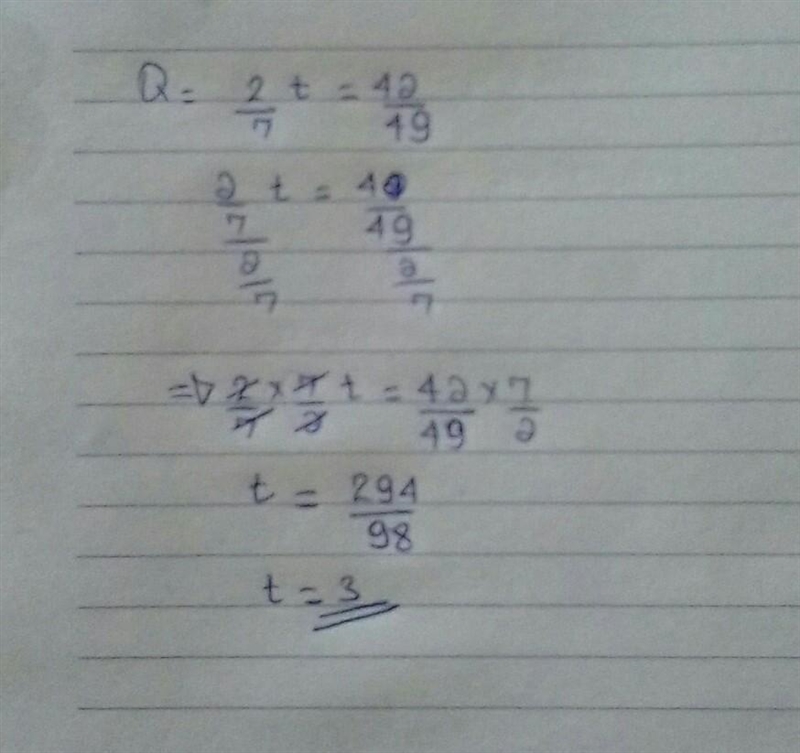 Q = 2/7 t = 42/49
2/7 / 2/7 t = 42/49 / 2/7
=> 2/7 × 7/2 t = 42/49 × 7/2
t = 294/98
t = 3